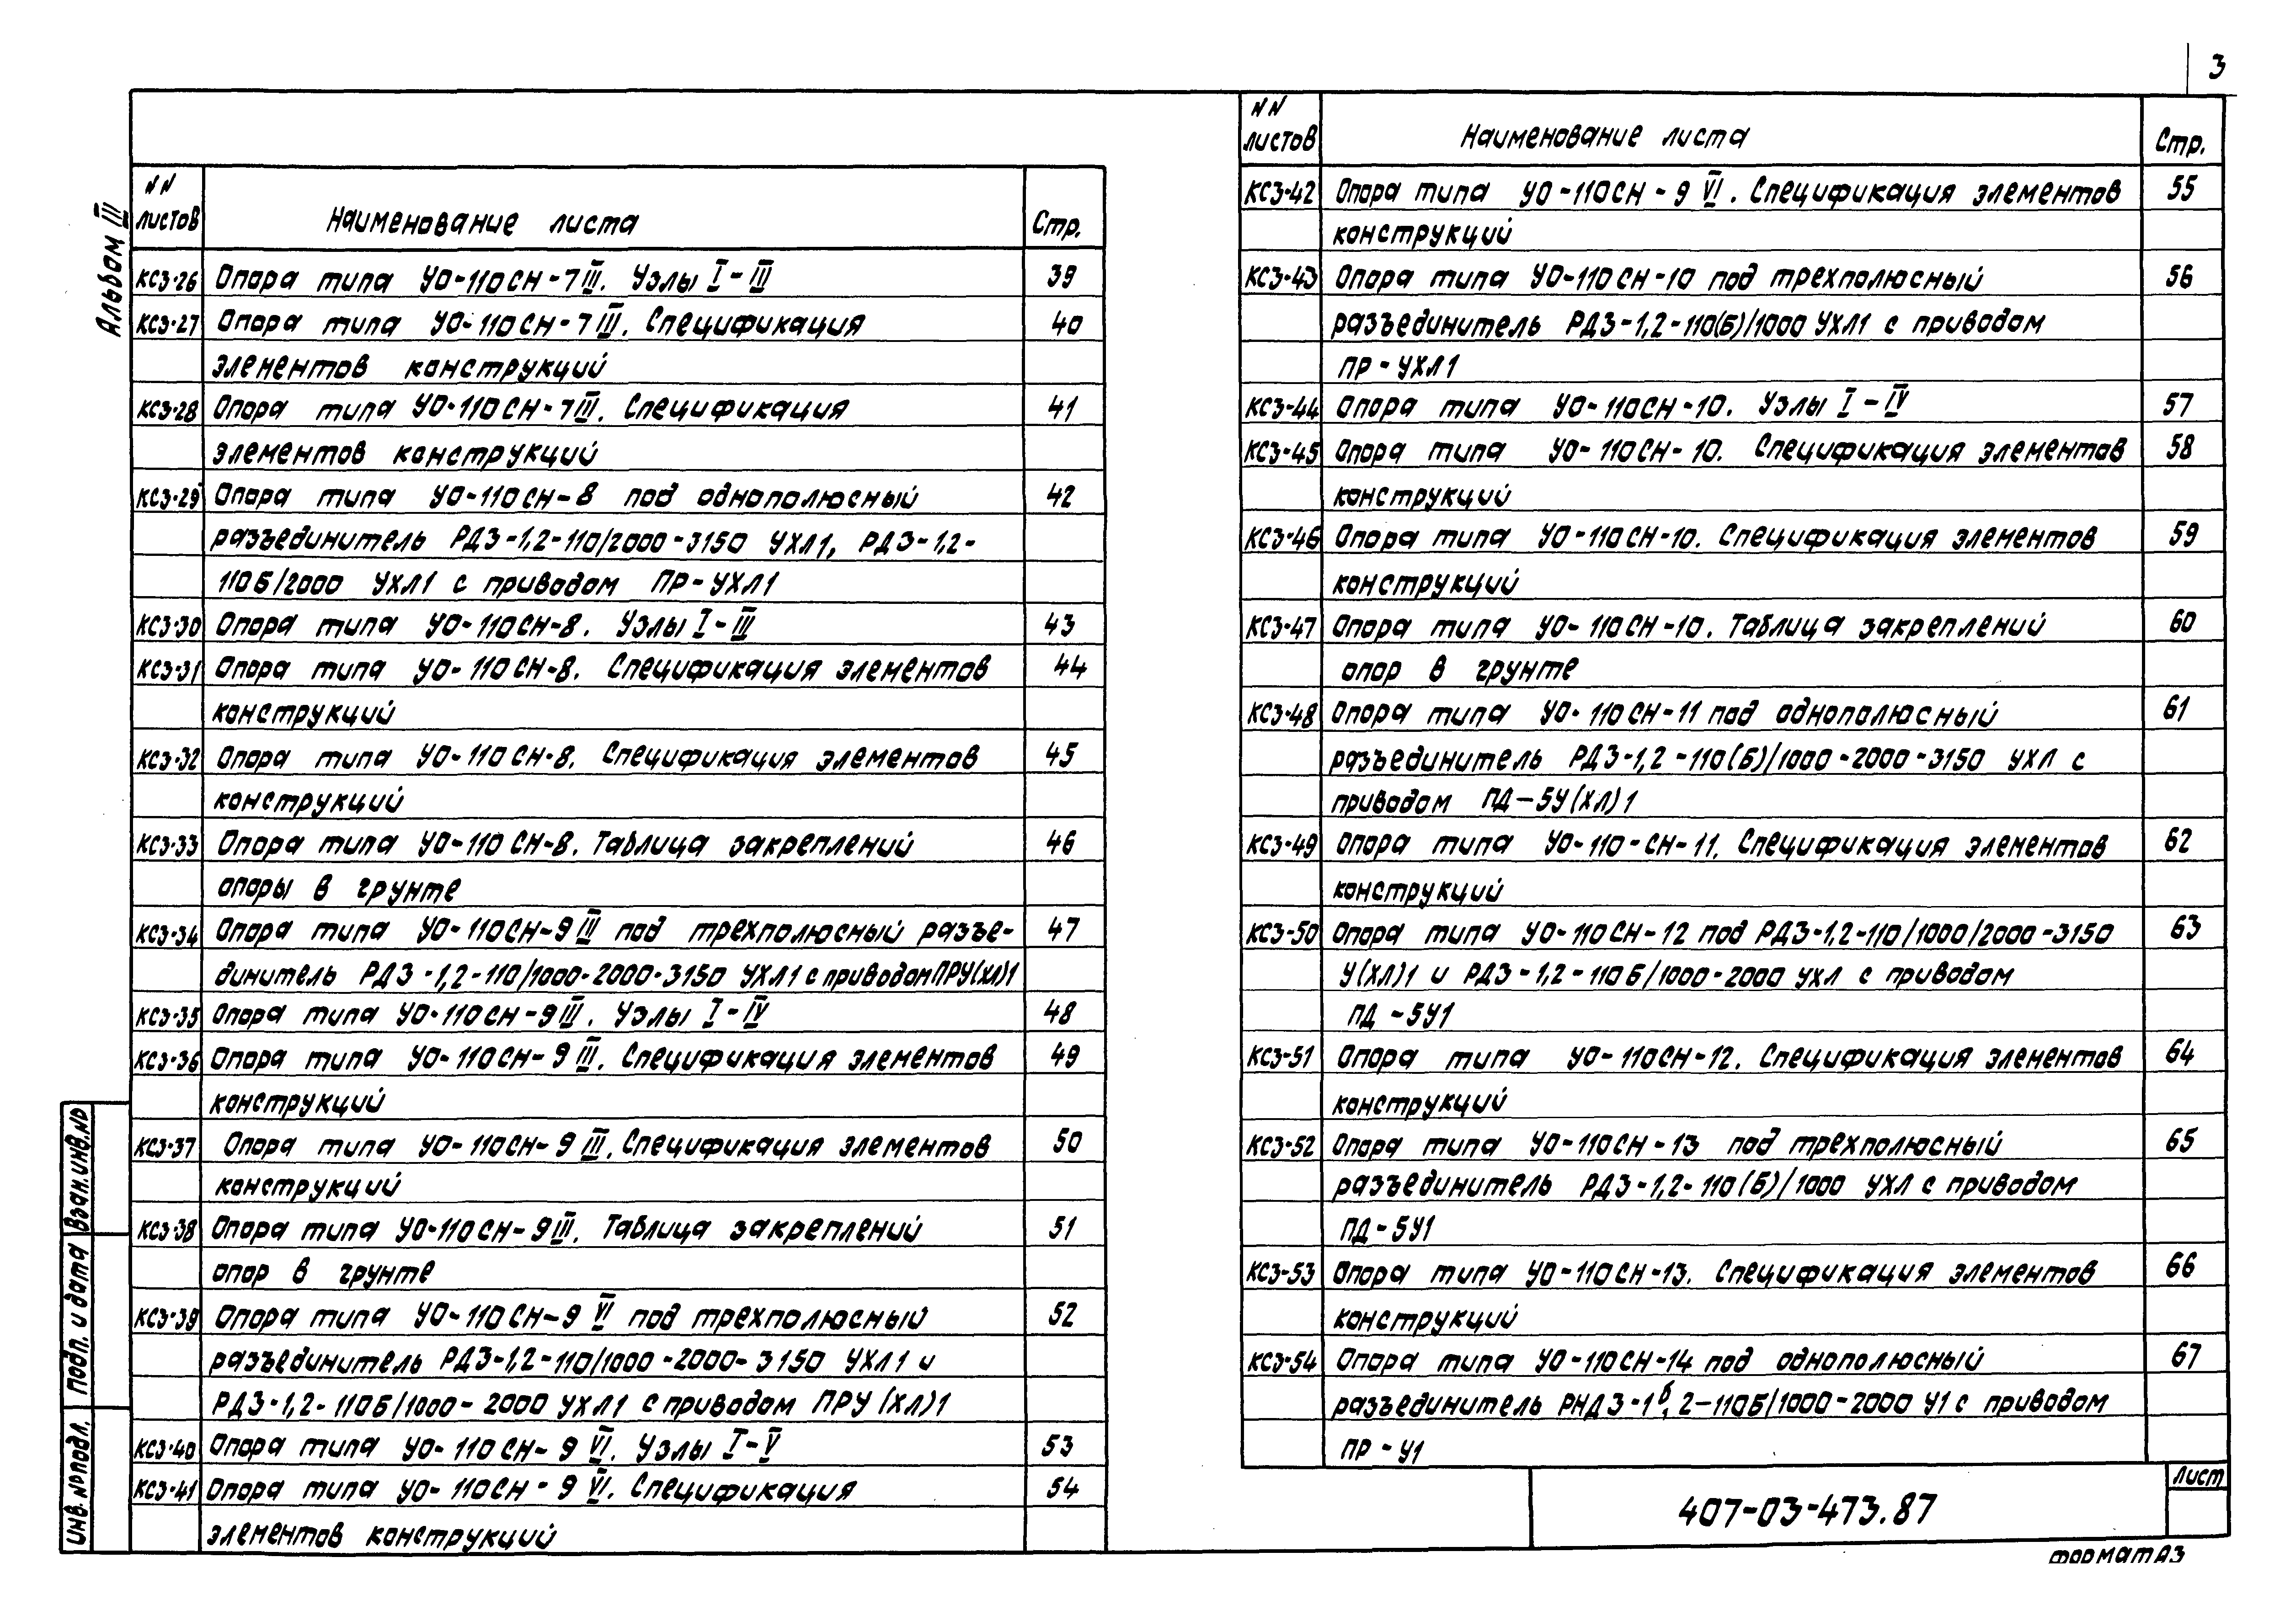 3
Альбом III
NN листов Наименование листа Стр.
КС3-26 Опора типа УО-110СН-7III. Узлы I-III 39
КС3-27 Опора типа УО-110СН-7III. Спецификация 40
элементов конструкций
КС3-28 Опора типа УО-110СН-7III. Спецификация 41
элементов конструкций
КС3-29 Опора типа УО-110СН-8 под однополюсный 42
разъединитель РДЗ-1,2-110/2000-3150 УХЛ1, РДЗ-1,2-
110Б/2000 УХЛ1 с приводом ПР-УХЛ1
КС3-30 Опора типа УО-110СН-8. Узлы I-III 43
КС3-31 Опора типа УО-110СН-8. Спецификация элементов 44
конструкций
КС3-32 Опора типа УО-110СН-8. Спецификация элементов 45
конструкций
КС3-33 Опора типа УО-110СН-8. Таблица закреплений 46
опоры в грунте
КС3-34 Опора типа УО-110СН-9III под трехполюсный разъе- 47
динитель РДЗ-1,2-110/1000-2000-3150 УХЛ1 с приводом ПРУ(ХЛ)1
КС3-35 Опора типа УО-110СН-9III. Узлы I-IV 48
КС3-36 Опора типа УО-110СН-9III. Спецификация элементов 49
конструкций
КС3-37 Опора типа УО-110СН-9III. Спецификация элементов 50
конструкций
КС3-38 Опора типа УО-110СН-9III. Таблица закреплений 51
опор в грунте
КС3-39 Опора типа УО-110СН-9VI под трехполюсный 52
разъединитель РДЗ-1,2-110/1000-2000-3150 УХЛ1 и
РДЗ-1,2-110Б/1000-2000 УХЛ1 с приводом ПРУ(ХЛ)1
КС3-40 Опора типа УО-110СН-9VI. Узлы I-V 53
КС3-41 Опора типа УО-110СН-9VI. Спецификация 54
элементов конструкций
NN листов Наименование листа Стр.
КС3-42 Опора типа УО-110СН-9VI. Спецификация элементов 55
конструкций
КС3-43 Опора типа УО-110СН-10 под трехполюсный 56
разъединитель РДЗ-1,2-110(Б)/1000 УХЛ1 с приводом
ПР-УХЛ1
КС3-44 Опора типа УО-110СН-10. Узлы I-IV 57
КС3-45 Опора типа УО-110СН-10. Спецификация элементов 58
конструкций
КС3-46 Опора типа УО-110СН-10. Спецификация элементов 59
конструкций
КС3-47 Опора типа УО-110СН-10. Таблица закреплений 60
опор в грунте
КС3-48 Опора типа УО-110СН-11 под однополюсный 61
разъединитель РДЗ-1,2-110(Б)/1000-2000-3150 УХЛ с
приводом ПД-5У(ХЛ)1
КС3-49 Опора типа УО-110-СН-11. Спецификация элементов 62
конструкций
КС3-50 Опора типа УО-110СН-12 под РДЗ-1,2-110/1000/2000-3150 63
У(ХЛ)1 и РДЗ-1,2-110Б/1000-2000 УХЛ с приводом
ПД-5У1
КС3-51 Опора типа УО-110СН-12. Спецификация элементов 64
конструкций
КС3-52 Опора типа УО-110СН-13 под трехполюсный 65
разъединитель РДЗ-1,2-110(Б)/1000 УХЛ с приводом
ПД-5У1
КС3-53 Опора типа УО-110СН-13. Спецификация элементов 66
конструкций
КС3-54 Опора типа УО-110СН-14 под однополюсный 67
разъединитель РНДЗ-1б,2-110Б/1000-2000 У1 с приводом
ПР-У1
Инв. №подл. Подп. и дата Взам.инв.№
407-03-473.87
Лист
Формат А3